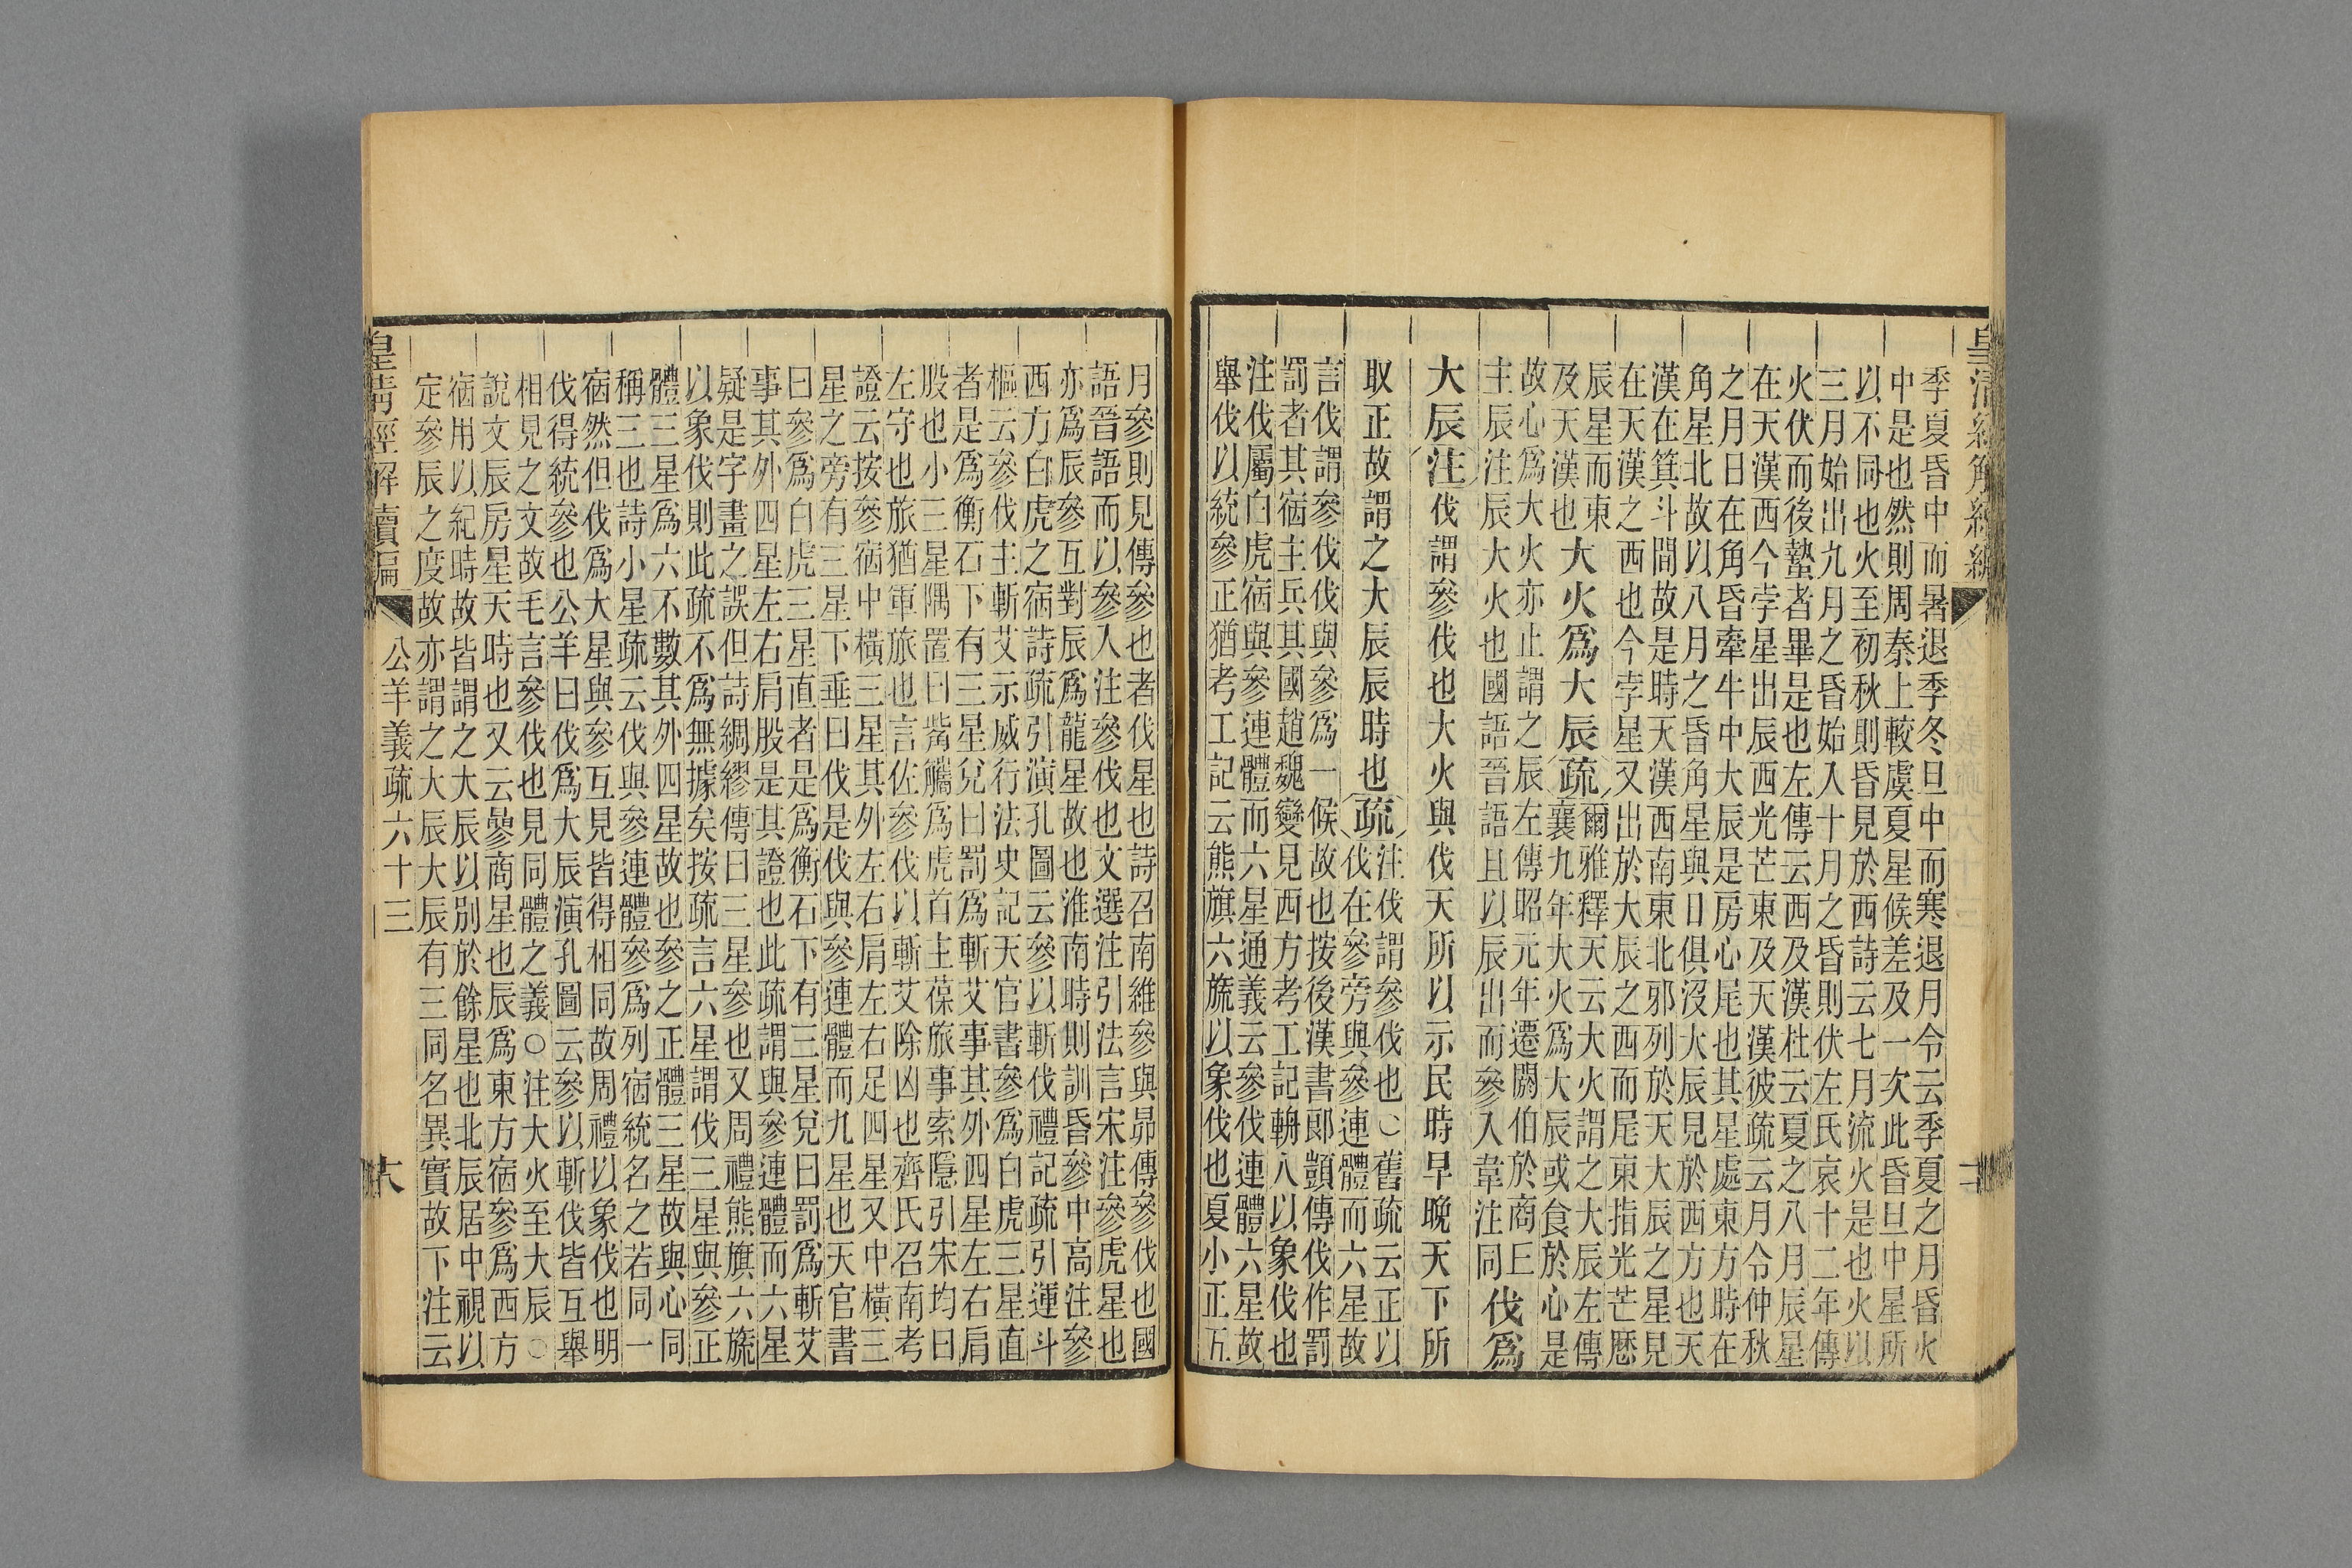 季夏昏中而暑退季冬旦中而寒退月令云季夏之月昏火
中是也然則周秦上較虞夏星候差及一次此昏旦中星所
以不同也火至初秋則昏見於西詩云七月流火是也火以
三月始出九月之昏始入十月之昏則伏左氏哀十二年傳
火伏而後蟄者畢是也左傳云西及漢杜云夏之八月辰星
在天漢西今孛星出辰西光芒東及天漢彼疏云月令仲秋
之月日在角昏牽牛中大辰是房心尾也其星處東方時在
角星北故以八月之昏角星與日俱沒大辰見於西方也天
漢在箕斗間故是時天漢西南東北邪列於天大辰之星見
在天漢之西也今孛星又出於大辰之西而尾東指光芒歷
辰星而東
及天漢也
大火爲大辰
疏
爾雅釋天云大火謂之大辰左傳
襄九年大火爲大辰或食於心是
故心爲大火亦止謂之辰左傳昭元年遷閼伯於商丘
主辰注辰大火也國語晉語且以辰出而參入韋注同
伐爲
大辰
注
伐謂參伐也大火與伐天所以示民時早晚天下所
取正故謂之大辰辰時也
疏
注伐謂參伐也○舊疏云正以
伐在參旁與參連體而六星故
言伐謂參伐伐與參爲一候故也按後漢書郞顗傳伐作罰
罰者其宿主兵其國趙魏變見西方考工記輈人以象伐也
注伐屬白虎宿與參連體而六星通義云參伐連體六星故
舉伐以統參正猶考工記云熊旗六旒以象伐也夏小正五
月參則見傳參也者伐星也詩召南維參與昴傳參伐也國
語晉語而以參入注參伐也文選注引法言宋注參虎星也
亦爲辰參互對辰爲龍星故也淮南時則訓昏參中高注參
西方白虎之宿詩疏引演孔圖云參以斬伐禮記疏引運斗
樞云參伐主斬艾示威行法史記天官書參爲白虎三星直
者是爲衡石下有三星兌曰罰爲斬艾事其外四星左右肩
股也小三星隅置曰觜觿爲虎首主葆旅事索隱引宋均曰
左守也旅猶軍旅也言佐參伐以斬艾除凶也齊氏召南考
證云按參宿中橫三星其外左右肩左右足四星又中橫三
星之旁有三星下垂曰伐是伐與參連體而九星也天官書
曰參爲白虎三星直者是爲衡石下有三星兌曰罰爲斬艾
事其外四星左右肩股是其證也此疏謂與參連體而六星
疑是字畫之誤但詩綢繆傳曰三星參也又周禮熊旗六旒
以象伐則此疏不爲無據矣按疏言六星謂伐三星與參正
體三星爲六不數其外四星故也參之正體三星故與心同
稱三也詩小星疏云伐與參連體參爲列宿統名之若同一
宿然但伐爲大星與參互見皆得相同故周禮以象伐也明
伐得統參也公羊曰伐爲大辰演孔圖云參以斬伐皆互舉
相見之文故毛言參伐也見同體之義○注大火至大辰○
說文辰房星天時也又云曑商星也辰爲東方宿參爲西方
宿用以紀時故皆謂之大辰以別於餘星也北辰居中視以
定參辰之度故亦謂之大辰大辰有三同名異實故下注云
皇清經解續編
公羊義疏六十三